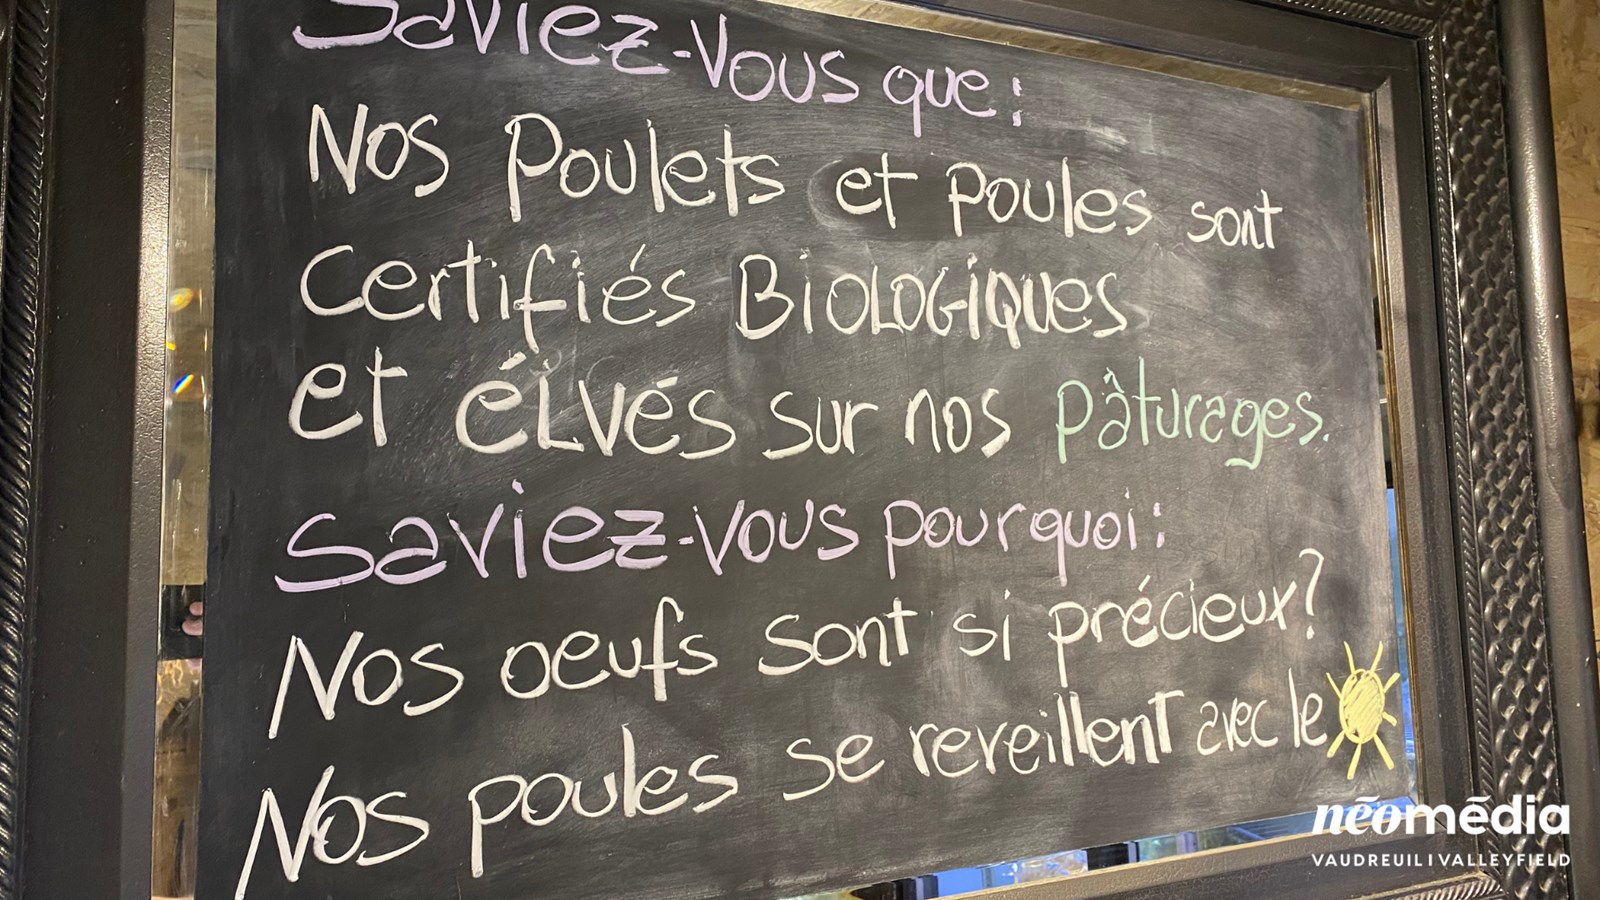 Saviez-Vous que:
Nos Poulets et poules sont
Certifiés BiOLOGiQUes
et éLvés sur nos pâturages.
Saviez-vous pourquoi:
Nos oeufs sont si précieux?
Nos poules se reveillent avec le
néomédia
VAUDREUIL | VALLEYFIELD